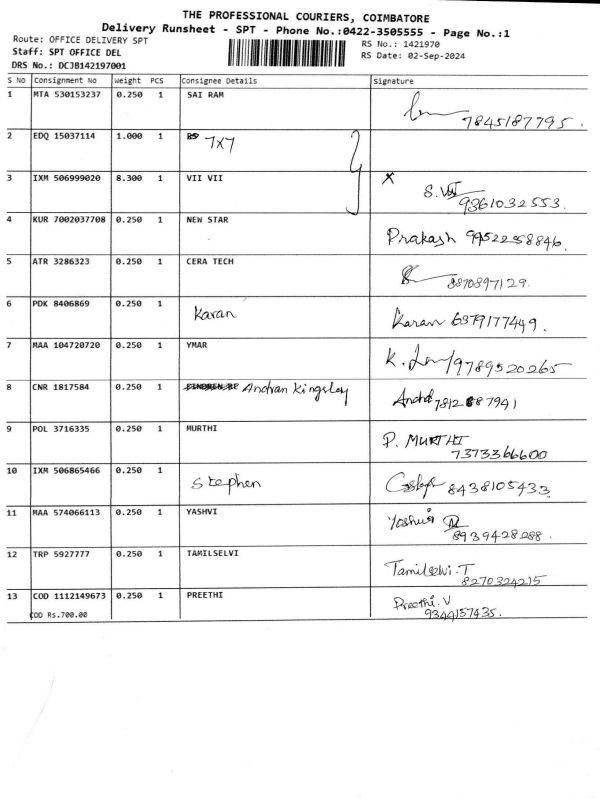 THE PROFESSIONAL COURIERS, COIMBATORE
Delivery Runsheet - SPT - Phone No.:0422-3505555 - Page No.:1
Route: OFFICE DELIVERY SPT
RS No.: 1421970
Staff: SPT OFFICE DEL
RS Date: 02-Sep-2024
DRS No.: DCJB142197001
S No Consignment No Weight PCS Consignee Details Signature
1 MTA 530153237 0.250 1 SAI RAM
7845187795.
2 EDQ 15037114 1.000 1 7x7
3 IXM 506999020 8.300 1 VII VII X
9361032553.
4 KUR 7002037708 0.250 1 NEW STAR
Prakash 9952258846.
5 ATR 3286323 0.250 1 CERA TECH
8870897129.
6 PDK 8406869 0.250 1 Karan
Karan 6379177449.
7 MAA 104720720 0.250 1 YMAR
K. 9789520265
8 CNR 1817584 0.250 1 Andran Kingsley
7941
9 POL 3716335 0.250 1 MURTHI
P. MURTHI
7373366600
10 IXM 506865466 0.250 1 Stephen
8438105433
11 MAA 574066113 0.250 1 YASHVI
8939428288.
12 TRP 5927777 0.250 1 TAMILSELVI
Tamilselvi.T
8270324215
13 COD 1112149673 0.250 1 PREETHI
Preethi.V
COD Rs.700.00
9344157435.